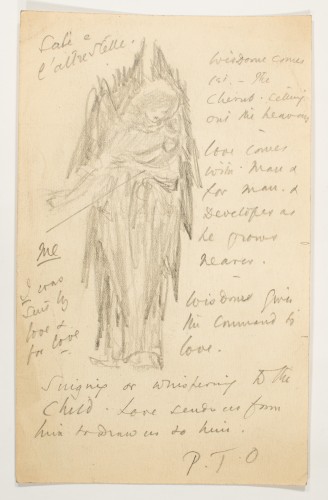 l'altre stelle.
Wisdome comes
1st. - The
Cherub. Calling
out the heavens
Love comes
with Man &
for man. &
Developes as
he grows
nearer.
Wisdome gives
the command to
love.
me
I was
sent by
love &
for love
or whispering to the
Child. Love sends us from
him to draw us to him.
P.T.O